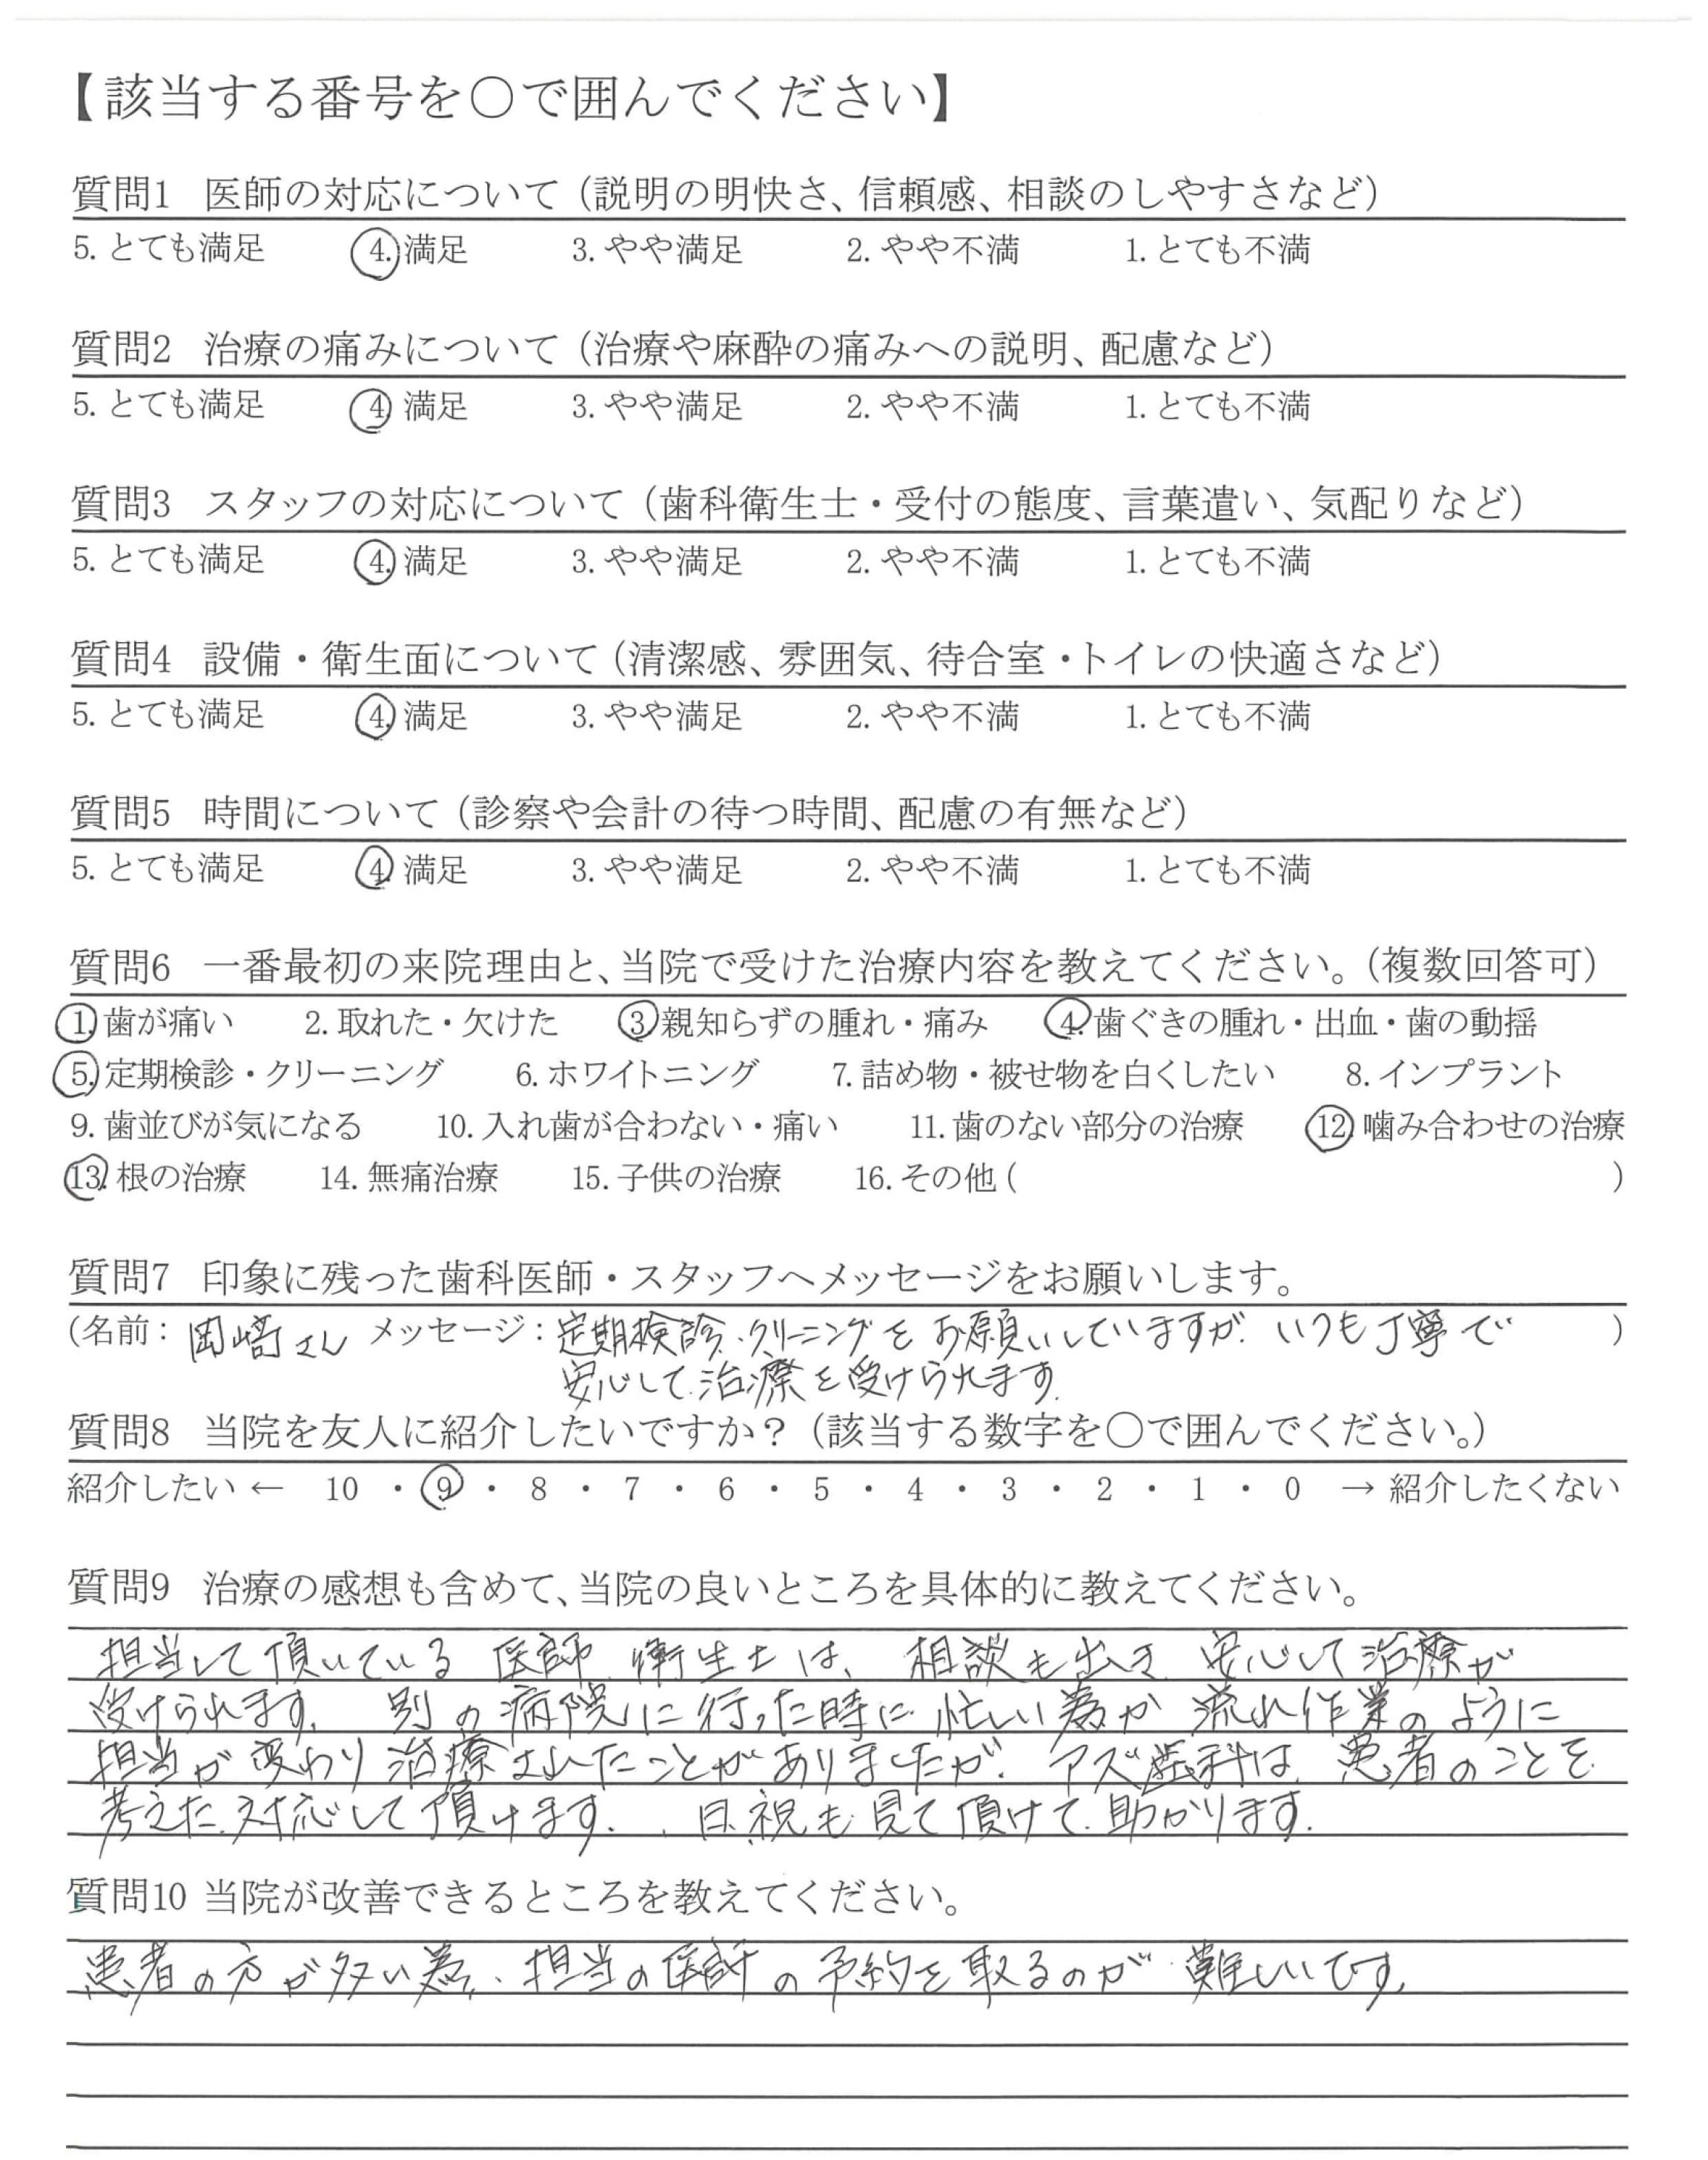 【該当する番号を〇で囲んでください】
質問1 医師の対応について（説明の明快さ、信頼感、相談のしやすさなど）
5. とても満足 4. 満足 3. やや満足 2. やや不満 1. とても不満
質問2 治療の痛みについて（治療や麻酔の痛みへの説明、配慮など）
5. とても満足 4. 満足 3. やや満足 2. やや不満 1. とても不満
質問3 スタッフの対応について（歯科衛生士・受付の態度、言葉遣い、気配りなど）
5. とても満足 4. 満足 3. やや満足 2. やや不満 1. とても不満
質問4 設備・衛生面について（清潔感、雰囲気、待合室・トイレの快適さなど）
5. とても満足 4. 満足 3. やや満足 2. やや不満 1. とても不満
質問5 時間について（診察や会計の待つ時間、配慮の有無など）
5. とても満足 4. 満足 3. やや満足 2. やや不満 1. とても不満
質問6 一番最初の来院理由と、当院で受けた治療内容を教えてください。（複数回答可）
1. 歯が痛い 2. 取れた・欠けた 3. 親知らずの腫れ・痛み 4. 歯ぐきの腫れ・出血・歯の動揺
5. 定期検診・クリーニング 6. ホワイトニング 7. 詰め物・被せ物を白くしたい 8. インプラント
9. 歯並びが気になる 10. 入れ歯が合わない・痛い 11. 歯のない部分の治療 12. 噛み合わせの治療
13. 根の治療 14. 無痛治療 15. 子供の治療 16. その他（ ）
質問7 印象に残った歯科医師・スタッフへメッセージをお願いします。
（名前：岡崎さん メッセージ：定期検診、クリーニングをお願いしていますが、いつも丁寧で ）
安心して、治療を受けられます。
質問8 当院を友人に紹介したいですか？（該当する数字を〇で囲んでください。）
紹介したい ← 10 ・ 9 ・ 8 ・ 7 ・ 6 ・ 5 ・ 4 ・ 3 ・ 2 ・ 1 ・ 0 → 紹介したくない
質問9 治療の感想も含めて、当院の良いところを具体的に教えてください。
担当して頂いている 医師、衛生士は、相談も出き、安心して治療が
受けられます。別の病院に行った時に、忙しい為か 流れ作業のように
担当が変わり治療されたことがありましたが、アズ歯科は、患者のことを
考えた、対応して頂けます。、日、祝も見て頂けて、助かります。
質問10 当院が改善できるところを教えてください。
患者の方が多い為、担当の医師の予約を取るのが、難しいです。